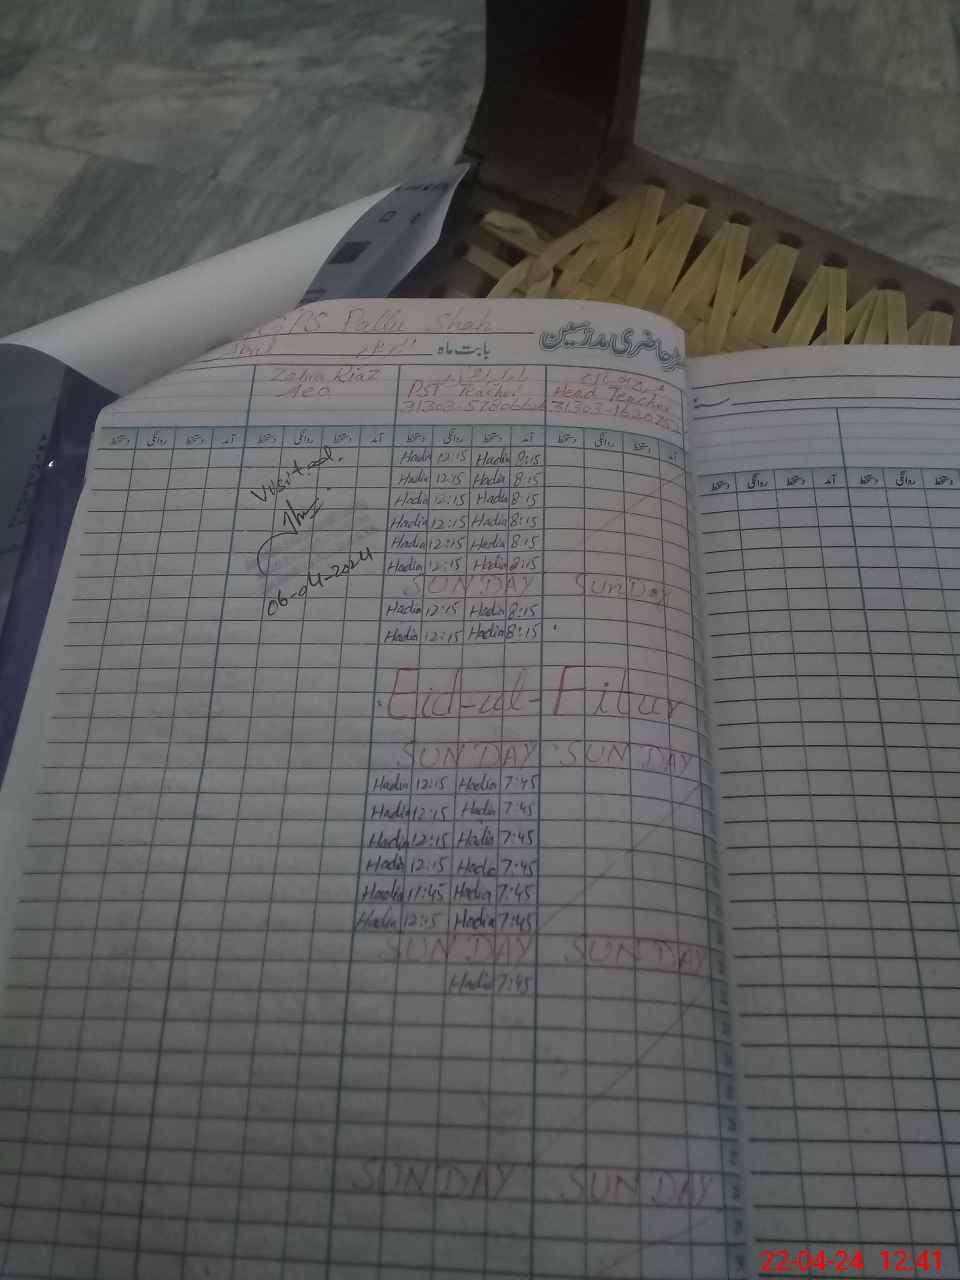 GPS Pallu Shah
رجسٹر حاضری مدرسین
بابت ماہ
April
Zahra Riaz
Aeo
PST Teacher
Head Teacher
دستخط روانگی دستخط آمد دستخط روانگی دستخط آمد دستخط روانگی دستخط آمد دستخط روانگی دستخط آمد
دستخط روانگی دستخط آمد دستخط روانگی دستخط
Hadia 12:15 Hadia 8:15
Hadia 12:15 Hadia 8:15
Hadia 12:15 Hadia 8:15
Hadia 12:15 Hadia 8:15
Hadia 12:15 Hadia 8:15
Hadia 12:15 Hadia 8:15
Visited.
06-04-2024
SUNDAY SUNDAY
Hadia 12:15 Hadia 8:15
Hadia 12:15 Hadia 8:15
Eid-ul-Fitur
SUNDAY SUNDAY
Hadia 12:15 Hadia 7:45
Hadia 12:15 Hadia 7:45
Hadia 12:15 Hadia 7:45
Hadia 12:15 Hadia 7:45
Hadia 11:45 Hadia 7:45
Hadia 12:15 Hadia 7:45
SUNDAY SUNDAY
Hadia 7:45
SUNDAY SUNDAY
22-04-24 12:41